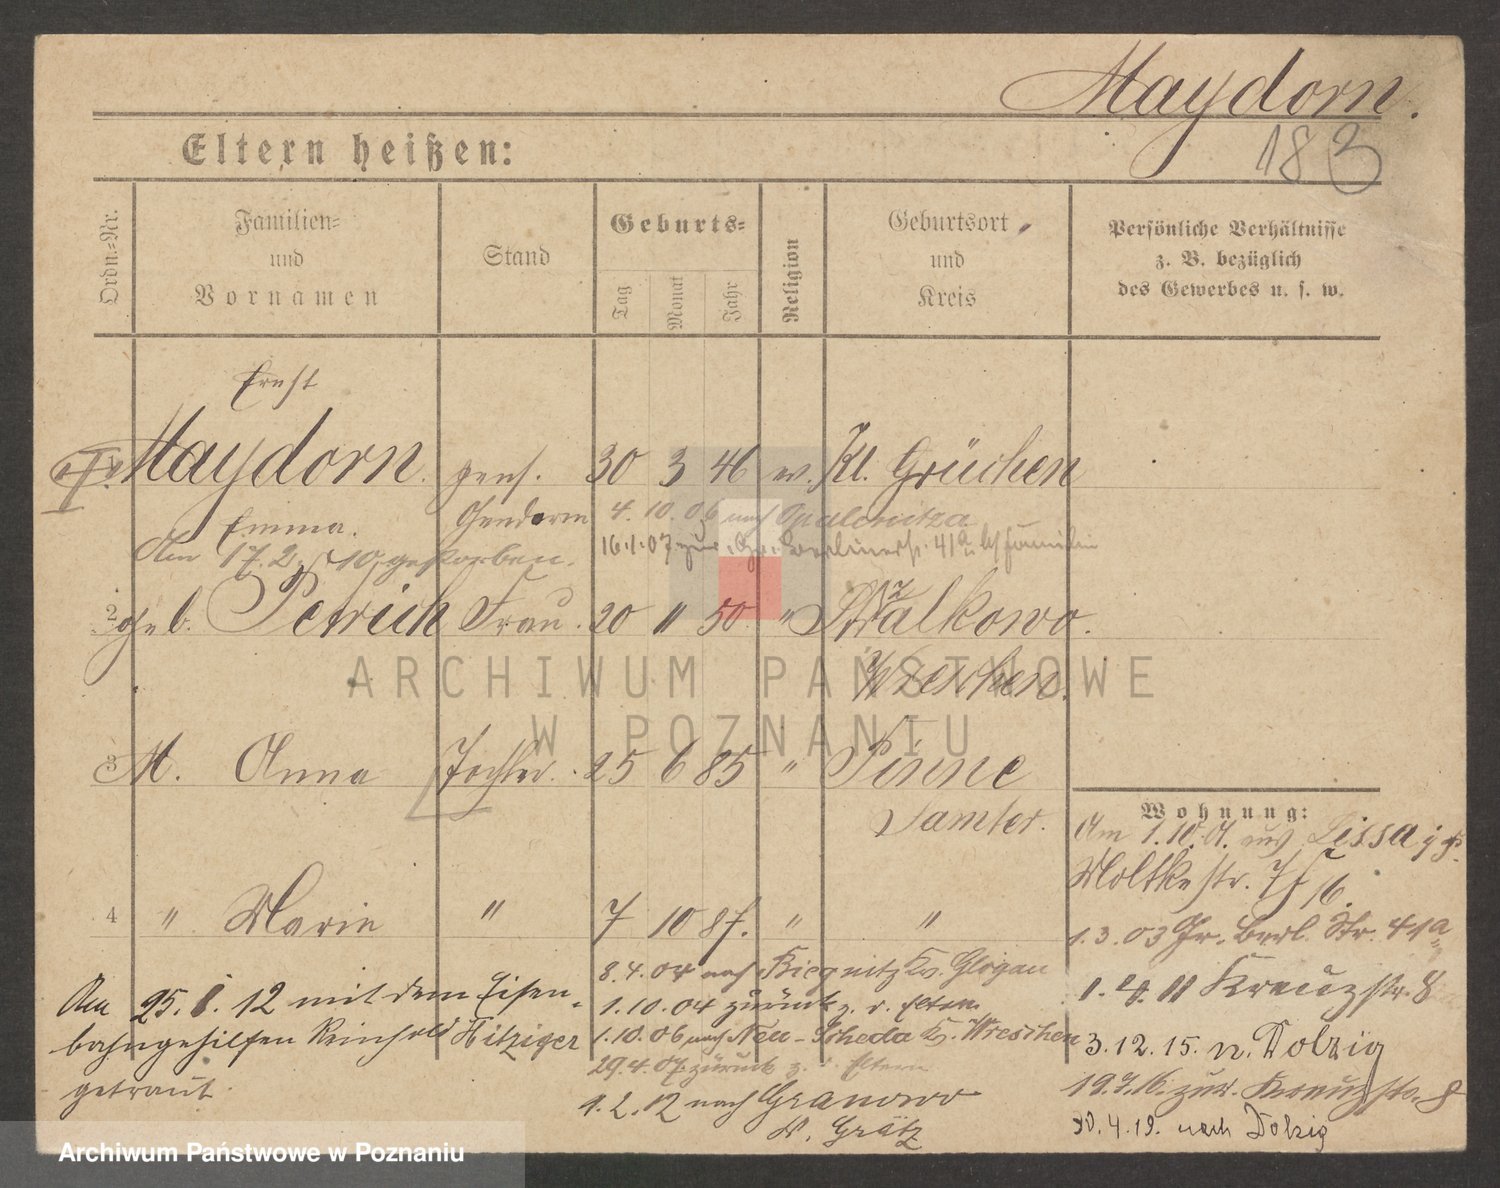 Maydorn.
183
Eltern heißen:
Ordn.-Nr.
Familien-
und
Vornamen
Stand
Geburts-
Tag
Monat
Jahr
Religion
Geburtsort
und
Kreis
Persönliche Verhältnisse
z. B. bezüglich
des Gewerbes u. s. w.
Ernst
Maydorn. pens. 30 3 46 ev. Kl. Grüchen
Gendarm 4.10.06 nach Opalenitza
Emma.
Am 17.2. 10. gestorben.
16.1.07 Gr. Berlinerstr. 41a
2 geb. Petrich Frau. 20 " 50 " Stralkowo.
Wreschen.
3 M. Anna Tochter. 25 6 85 " Pinne
Samter.
Wohnung:
Am 1.10. aus Lissa
Moltkestr. 7
4 " Marie " 7 10 87. " "
1.3.03 Gr. Berl. Str. 41a
8.4.04 nach Kr. Glogau
1.10.04 zurück z. d. Eltern
1.10.06 nach Neu-Scheda Kr. Wreschen
29.4.07 zurück z. Eltern
1.2.12 nach Granowo
Kr. Grätz
Am 25.1.12 mit dem Eisen-
bahngehilfen Reinhold Hitziger
getraut.
Kreuzstr. 8
3.12.15. n. Dolzig
19.7.16. zur. Kreuzstr. 8
30.4.19. nach Dolzig
ARCHIWUM PAŃSTWOWE
W POZNANIU
Archiwum Państwowe w Poznaniu